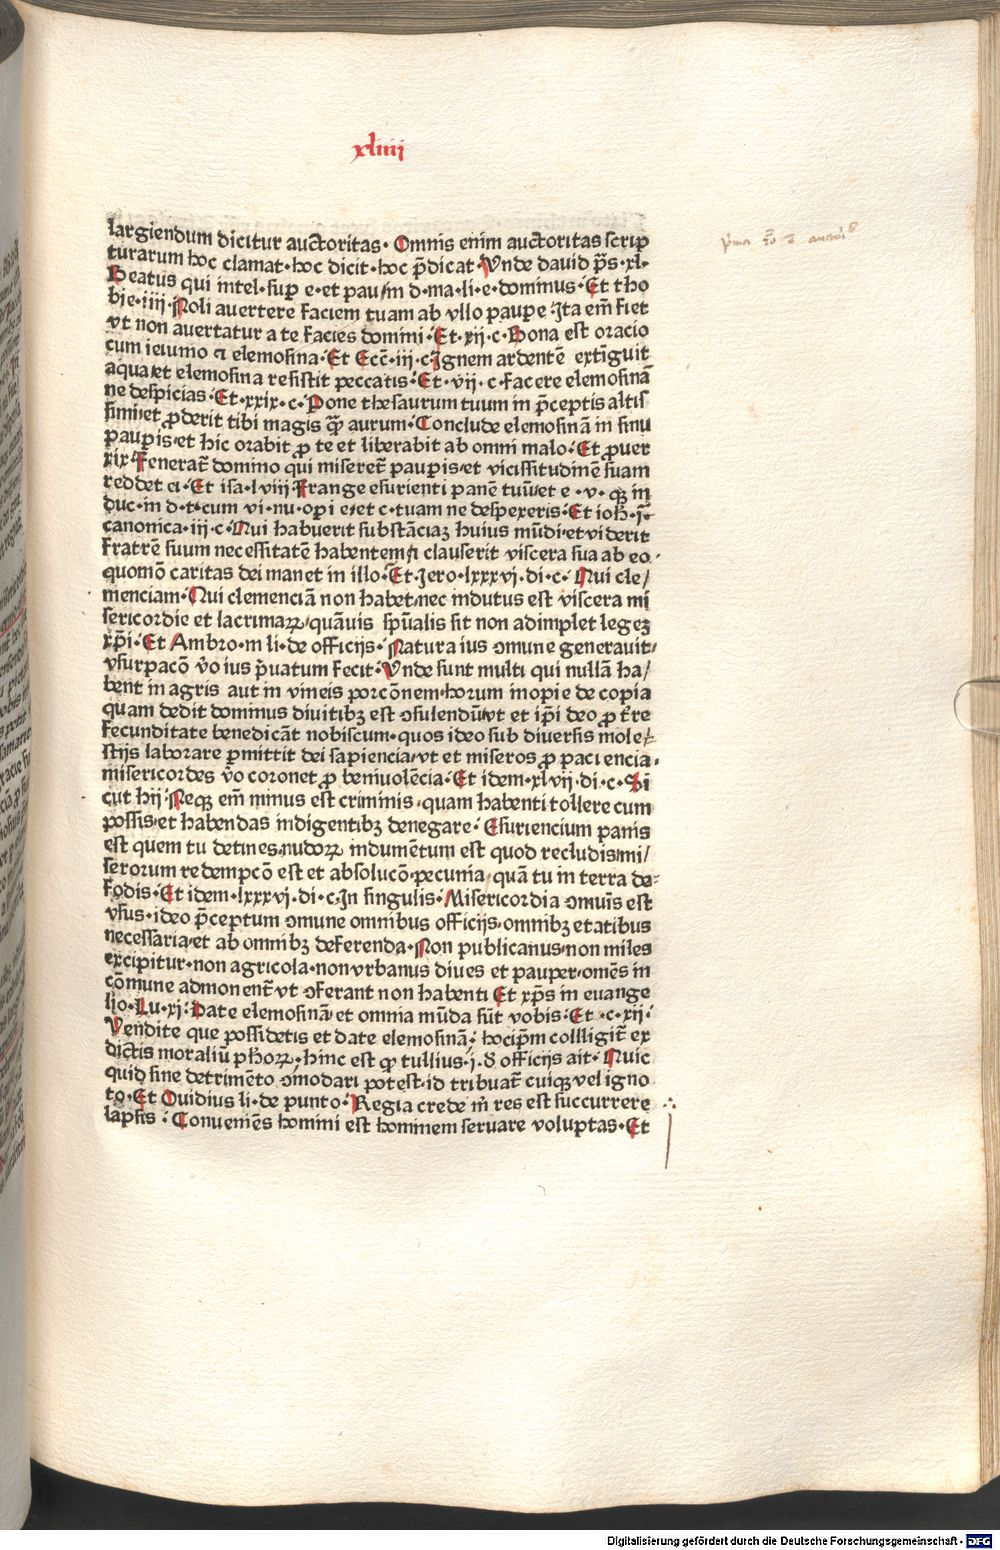 xliiij
largiendum dicitur auctoritas· Omnis enim auctoritas scrip
turarum hoc clamat·hoc dicit·hoc p̄dicat·Vnde dauid p̄s·xl·
Beatus qui intel·sup e·et pau/in d·ma·li·e·dominus·Et tho
bie·iiii·Noli auertere faciem tuam ab vllo paupe·Ita em̄ fiet
vt non auertatur a te facies domini·Et·xij·c·Bona est oracio
cum ieiunio cū elemosina·Et Ecc̄·iij·c·Ignem ardentē extīguit
aqua·et elemosina resistit peccatis·Et·vij·c·facere elemosinā
ne despicias·Et·xxix·c·Pone thesaurum tuum in p̄ceptis altis
simi·et ꝓderit tibi magis quā aurum·Conclude elemosinā in sinu
paupis·et hic orabit ꝓ te et liberabit ab omni malo·Et ꝓuer
xix·Fenerat̄ domino qui miseret̄ paupis·et vicissitudinē suam
reddet ei·Et isa·lviij·Frange esurienti panē tuū·et e·v·qꝫ in
duc·in d·t·cum vi·nu·opi e·et c·tuam ne despexeris·Et ioh̄·j·
canonica·iij·c·Qui habuerit substāciaꝫ huius mūdi·et viderit
fratrē suum necessitatē habentem·⁊ clauserit viscera sua ab eo·
quomō caritas dei manet in illo·Et·Jero·lxxxvj·di·c·Qui cle/
menciam·Qui clemenciā non habet·nec indutus est viscera mi
sericordie et lacrimaꝝ/quāuis spūalis sit non adimplet legeꝫ
xp̄i·Et Ambro·in li·de officijs·Natura ius ɔmune generauit·
vsurpacō v̄o ius p̄uatum fecit·Vnde sunt multi qui nullā ha/
bent in agris aut in vineis porcōnem·horum inopie de copia
quam dedit dominus diuitibꝫ est ɔsulendū·vt et ip̄i deo ꝓ t̄re
fecunditate benedicāt nobiscum·quos ideo sub diuersis mole/
stijs laborare pmittit dei sapiencia·vt et miseros ꝓ paciencia·
misericordes v̄o coronet ꝓ beniuolēcia·Et idem·xlvij·di·c·Si
cut hij·Neqꝫ em̄ minus est criminis·quam habenti tollere cum
possis·et habendas indigentibꝫ denegare·Esuriencium panis
est quem tu detines·nudoꝝ indumētum est quod recludis·mi/
serorum redempcō est et absolucō·pecunia·quā tu in terra de·
fodis·Et idem·lxxxvj·di·c·In singulis·Misericordia ɔmuīs est
vsus·ideo p̄ceptum ɔmune omnibus officijs·omnibꝫ etatibus
necessaria·et ab omnibꝫ deferenda·Non publicanus·non miles
excipitur·non agricola·non vrbanus diues et pauper·omēs in
cōmune admonent̄ vt ɔferant non habenti Et xp̄s in euange
lio·Lu·xj·Date elemosinā et omnia mūda sūt vobis·Et·c·xij·
Vendite que possidetis et date elemosinā·hoc ip̄m colligit̄ ex
dictis moraliū ph̄oꝝ·hinc est qꝓ tullius·j·d̄ officijs ait·Quic
quid sine detrimēto ɔmodari potest·id tribuat̄ cuiqꝫ vel igno
to·Et Ouidius li·de punto·Regia crede m̄ res est succurrere
lapsis·Conueniēs homini est hominem seruare voluptas·Et
Digitalisierung gefördert durch die Deutsche Forschungsgemeinschaft - DFG